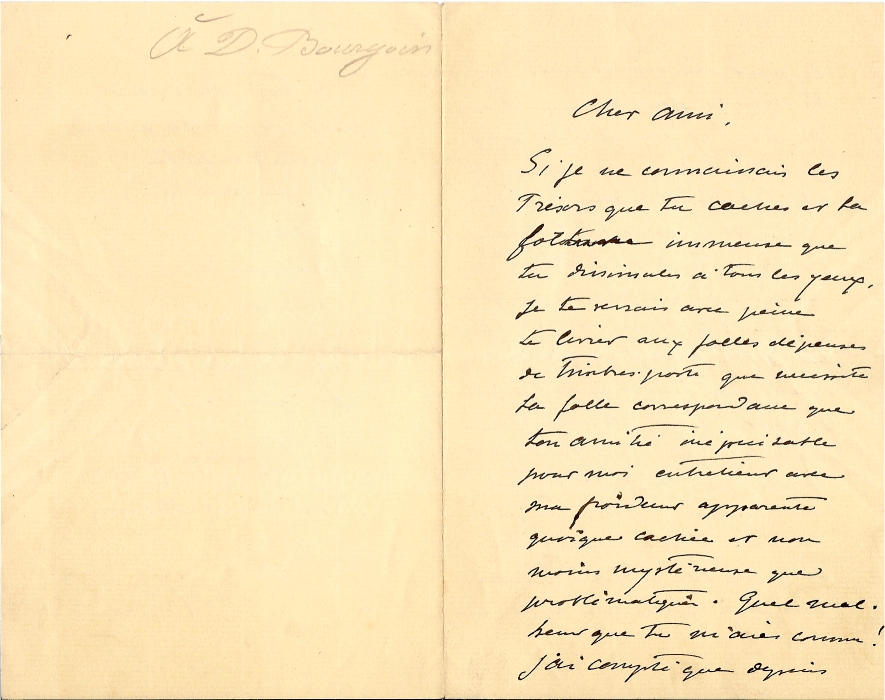 À D. Bourgoin
Cher ami,
Si je ne connaissais les
Trésors que tu caches et la
immense que
tu dissimules à tous les yeux,
Je te verrais avec peine
te livrer aux folles dépenses
de timbres-poste que nécessite
la folle correspondance que
ton amitié inépuisable
pour moi entretient avec
ma froideur apparente
quoique cachée et non
moins mystérieuse que
problématique. Quel mal-
heur que tu m'aies connu!
J'ai compté que depuis